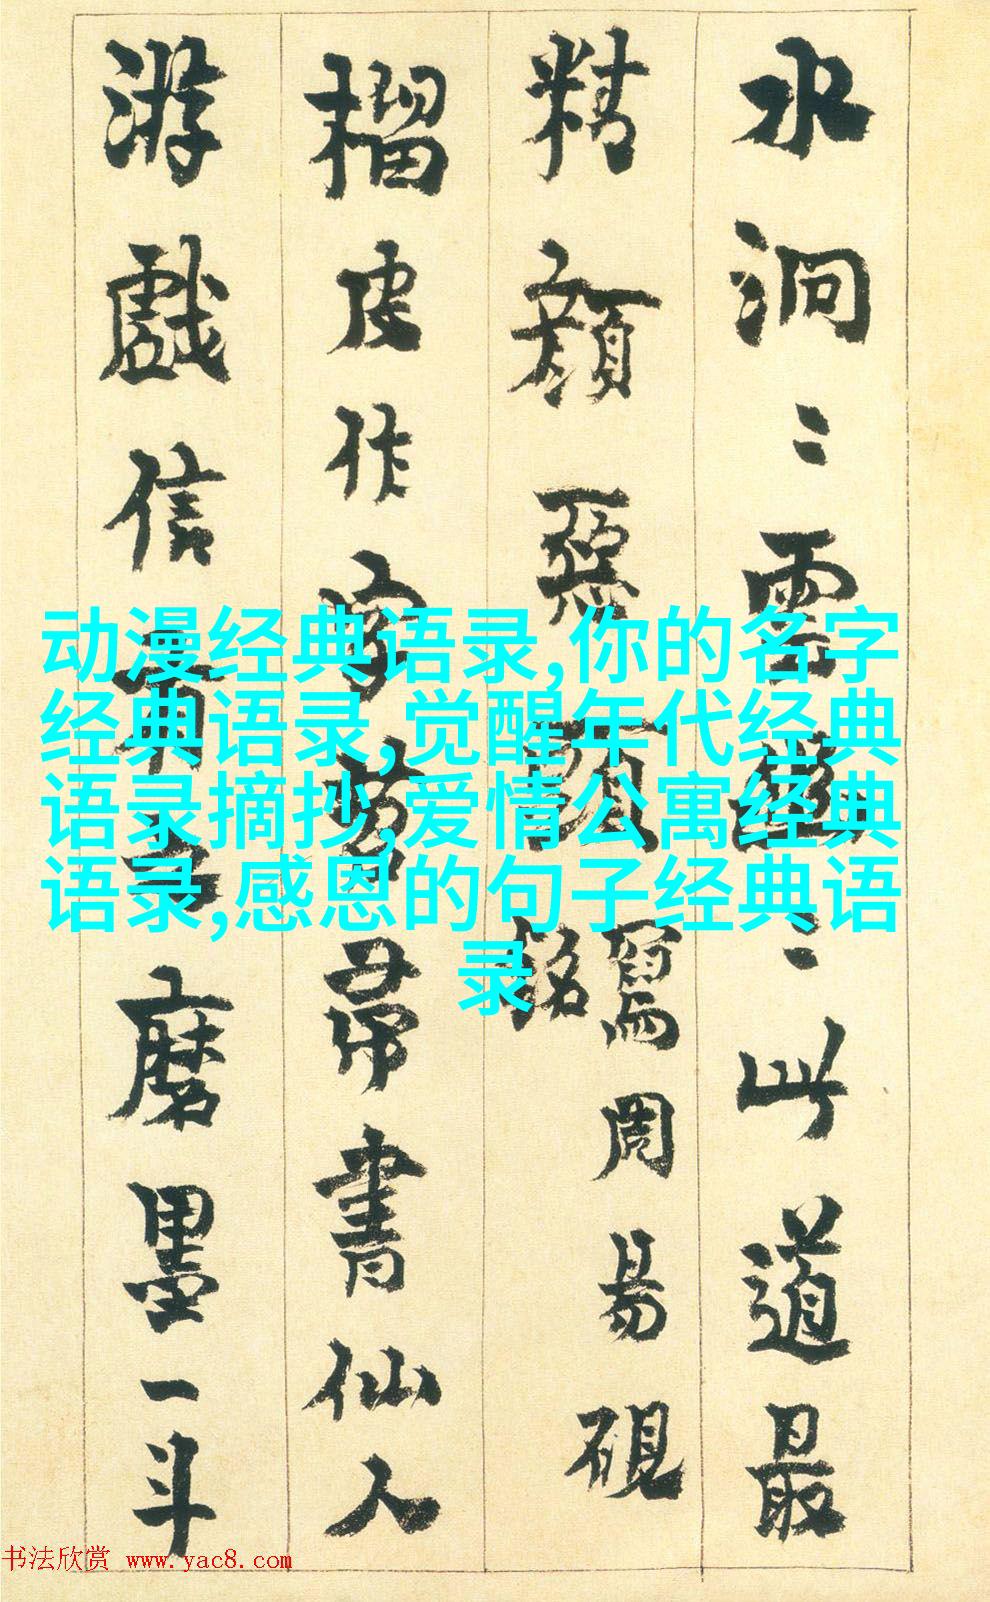 水洞〻雲壑〻此道最
精顔惡頭
寫周易硯
銘
榴皮作字苕帚書仙人
游戲信有之磨墨一斗
动漫经典语录,你的名字
经典语录,觉醒年代经典
语录摘抄,爱情公寓经典
语录,感恩的句子经典语
录
书法欣赏 www.yac8.com